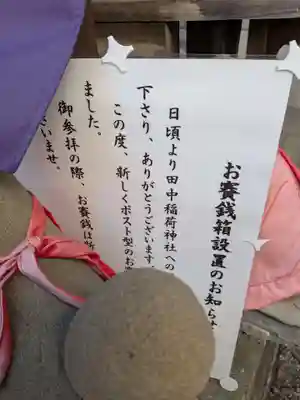 お賽銭箱設置のお知らせ
日頃より田中稲荷神社への
下さり、ありがとうございます
この度、新しくポスト型のお
ました。
御参拝の際、お賽銭は
いませ。